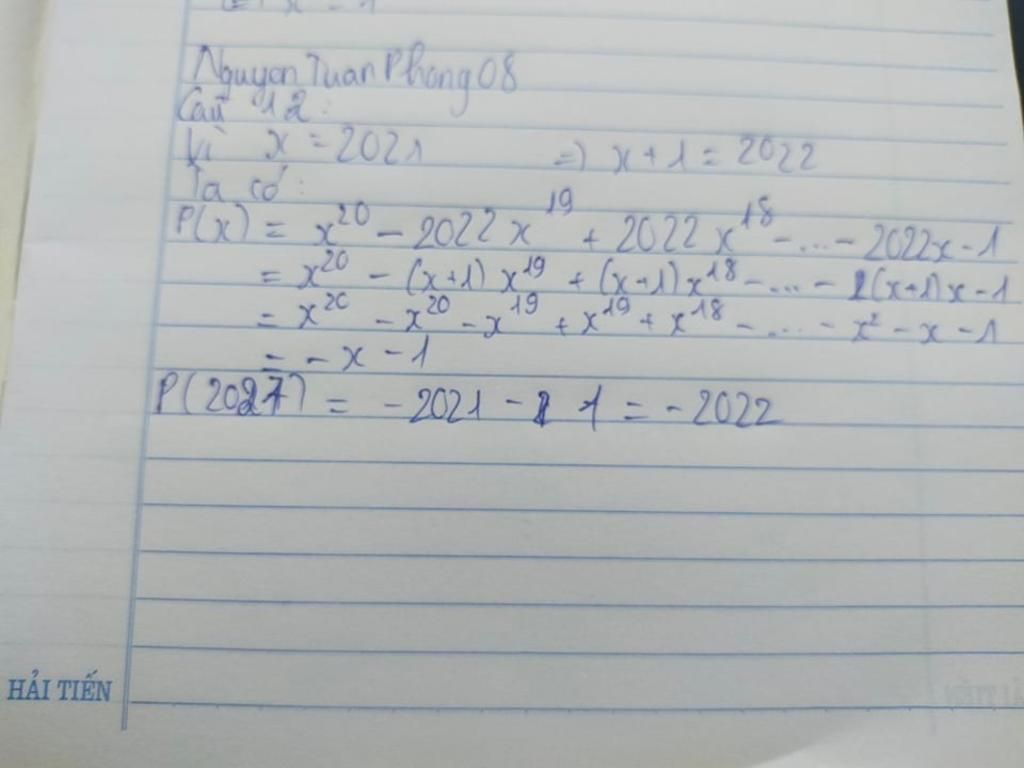 Nguyen Tuan Phong 08
Câu 12:
Vì x = 2021 => x + 1 = 2022
Ta có:
P(x) = x²⁰ - 2022x¹⁹ + 2022x¹⁸ - ... - 2022x - 1
= x²⁰ - (x+1)x¹⁹ + (x+1)x¹⁸ - ... - (x+1)x - 1
= x²⁰ - x²⁰ - x¹⁹ + x¹⁹ + x¹⁸ - ... - x² - x - 1
= - x - 1
P(2021) = -2021 - 1 = -2022
HẢI TIẾN